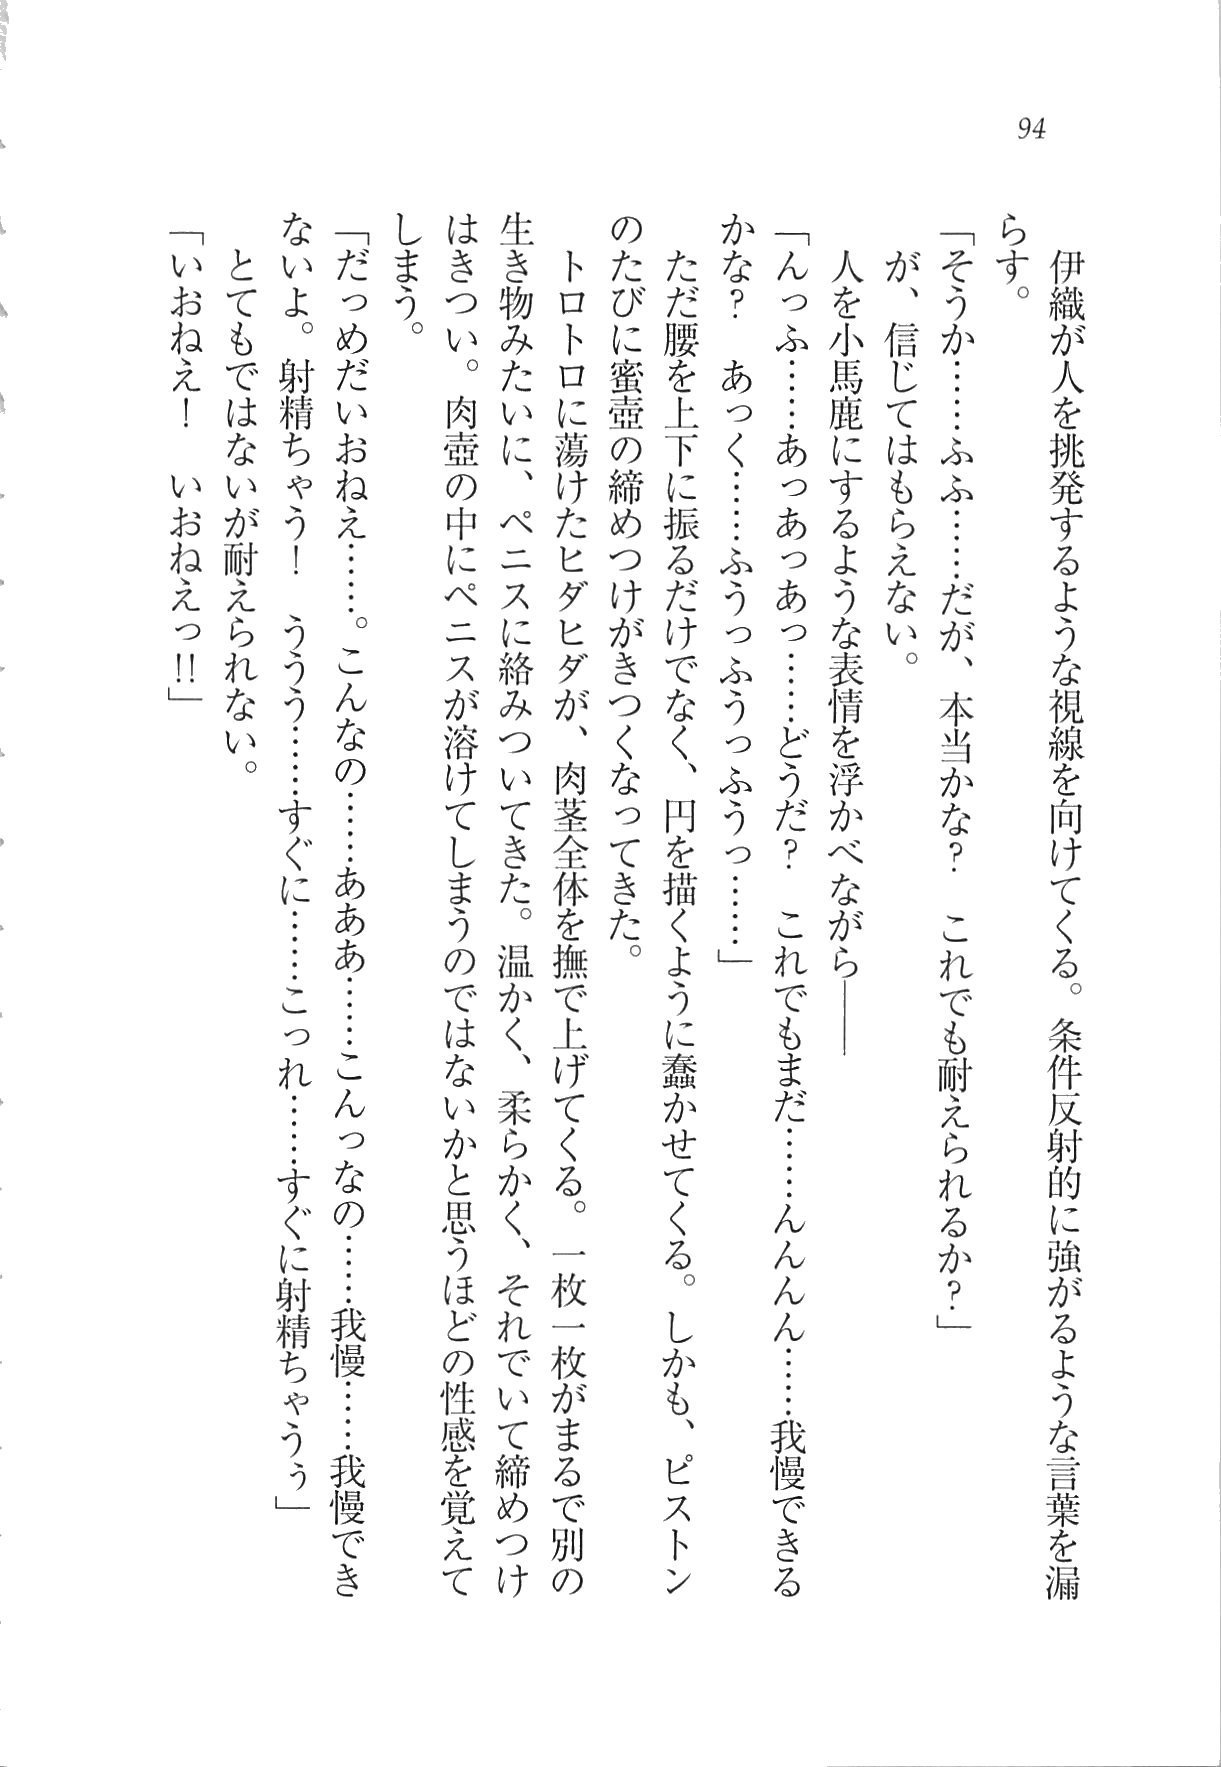 94
伊織が人を挑発するような視線を向けてくる。条件反射的に強がるような言葉を漏
らす。
「そうか……ふふ……だが、本当かな？　これでも耐えられるか？」
が、信じてはもらえない。
人を小馬鹿にするような表情を浮かべながら――
「んっふ……あっあっあっ……どうだ？　これでもまだ……んんんん……我慢できる
かな？　あっく……ふうっふうっふうっ……」
ただ腰を上下に振るだけでなく、円を描くように蠢かせてくる。しかも、ピストン
のたびに蜜壺の締めつけがきつくなってきた。
トロトロに蕩けたヒダヒダが、肉茎全体を撫で上げてくる。一枚一枚がまるで別の
生き物みたいに、ペニスに絡みついてきた。温かく、柔らかく、それでいて締めつけ
はきつい。肉壺の中にペニスが溶けてしまうのではないかと思うほどの性感を覚えて
しまう。
「だっめだいおねえ……。こんなの……あああ……こんっなの……我慢……我慢でき
ないよ。射精ちゃう！　ううう……すぐに……こっれ……すぐに射精ちゃうぅ」
とてもではないが耐えられない。
「いおねえ！　いおねえっ!!」